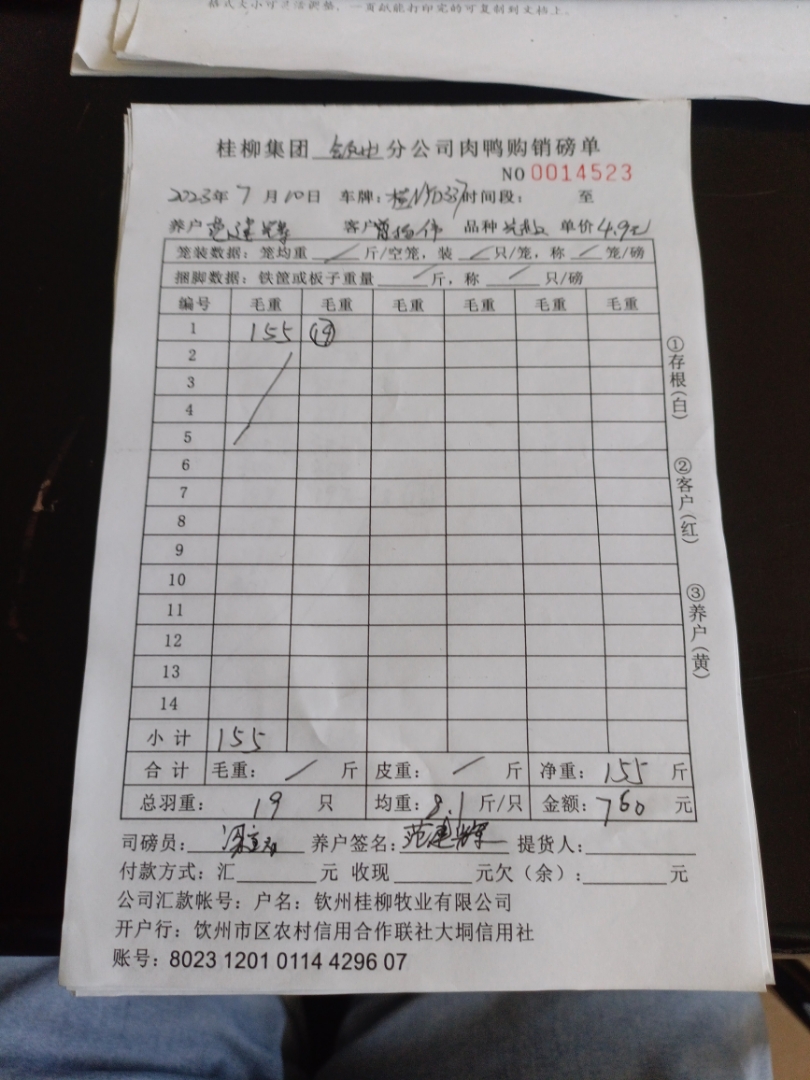 格式大小可灵活调整，一页纸能打印完的可复制到文档上。
桂柳集团 钦州 分公司肉鸭购销磅单
NO 0014523
2023年 7 月 10日 车牌： 时间段： 至
养户 范建辉 客户 品种 单价 4.9元
笼装数据：笼均重 / 斤/空笼，装 / 只/笼，称 / 笼/磅
捆脚数据：铁筐或板子重量 / 斤，称 / 只/磅
编号 毛重 毛重 毛重 毛重 毛重 毛重
1 155 19
2
3
4
5
6
7
8
9
10
11
12
13
14
小计 155
合计 毛重： / 斤 皮重： / 斤 净重：155 斤
总羽重： 19 只 均重：8.1 斤/只 金额：760 元
司磅员： 养户签名：范建辉 提货人：
付款方式：汇 元 收现 元欠（余）： 元
公司汇款帐号：户名：钦州桂柳牧业有限公司
开户行：饮州市区农村信用合作联社大垌信用社
账号：8023 1201 0114 4296 07
①存根（白）
②客户（红）
③养户（黄）